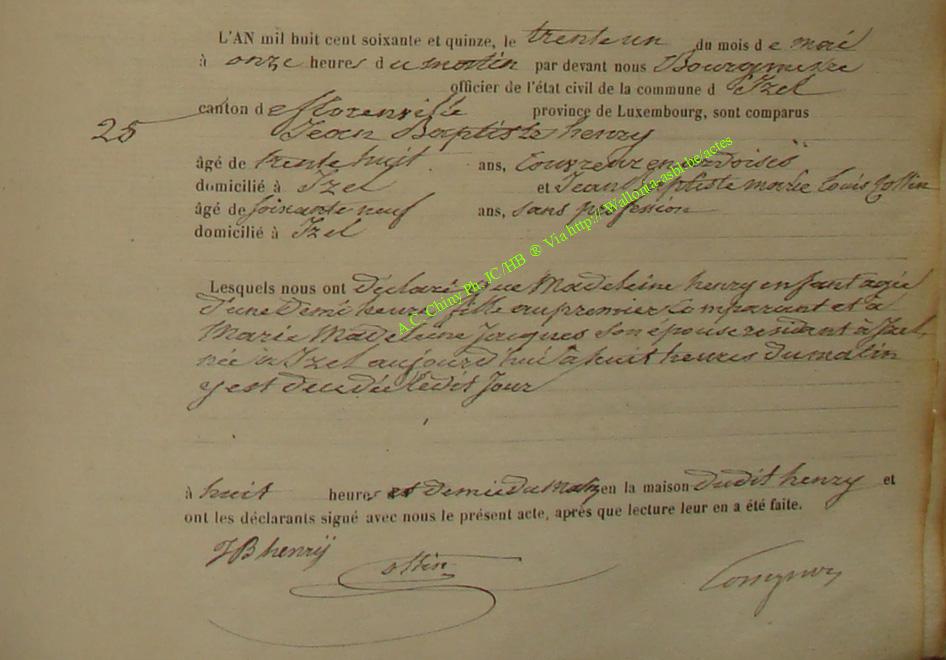 L'AN mil huit cent soixante et quinze, le trente un du mois de mai
à onze heures du matin par devant nous Bourgmestre
officier de l'état civil de la commune d'Izel
canton de florenville province de Luxembourg, sont comparus
25 Jean Baptiste henry
âgé de trente huit ans, Couvreur en ardoises
domicilié à Izel et Jean Baptiste marie Louis
âgé de soixante neuf ans, sans profession
domicilié à Izel
Lesquels nous ont déclaré que Madeleine henry enfant agée
d'une demi heure fille au premier Comparant et à
Marie Madeleine Jacques son épouse residant à Izel
née à Izel aujourd'hui à huit heures du matin
y est decedée ledit Jour
à huit heures et demie du matin en la maison dudit henry et
ont les déclarants signé avec nous le présent acte, après que lecture leur en a été faite.
JB henrÿ
A.C. Chiny Ph. JC/HB ® Via http://Wallonia-asbl.be/actes